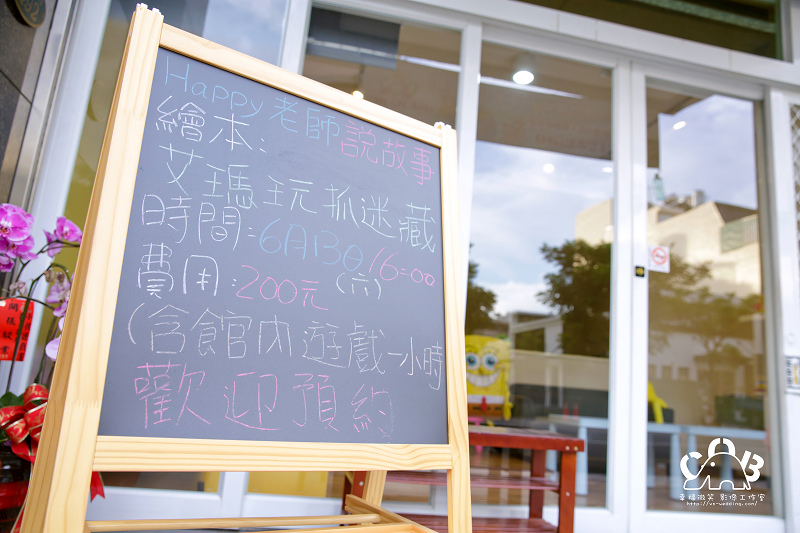 Happy老師說故事
繪本:
艾瑪玩抓迷藏
時間:6月13日 16:00
費用:200元(六)
(含館內遊戲一小時
歡迎預約
幸福微笑 影像工作室